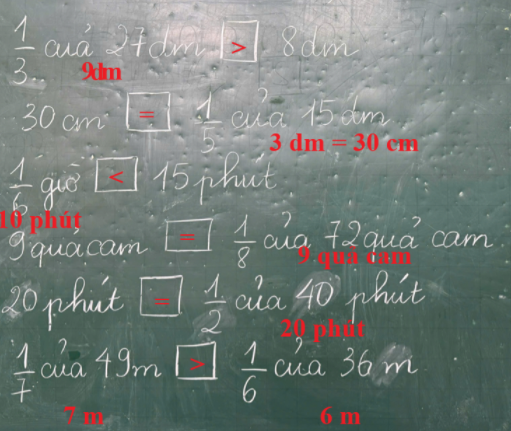 1/3 của 27dm > 8dm
9dm
30 cm = 1/5 của 15 dm
3 dm = 30 cm
1/6 giờ < 15 phút
10 phút
9 quả cam = 1/8 của 72 quả cam
9 quả cam
20 phút = 1/2 của 40 phút
20 phút
1/7 của 49m > 1/6 của 36 m
7 m 6 m